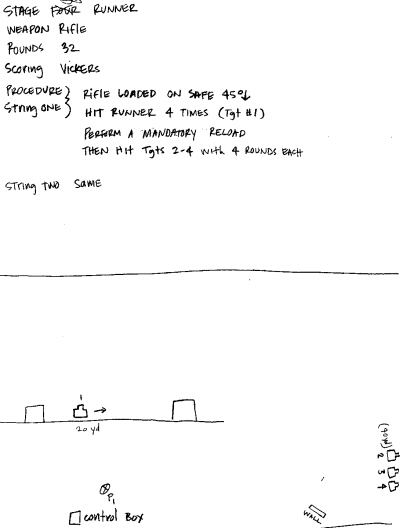 STAGE FOUR RUNNER
WEAPON Rifle
ROUNDS 32
Scoring VICKERS
PROCEDURE) RIFLE LOADED ON SAFE 45°↓
String ONE) HIT RUNNER 4 TIMES (Tgt #1)
PERFORM A MANDATORY RELOAD
THEN HIT Tgts 2-4 with 4 ROUNDS EACH
String TWO Same
1
20 yd
(90yd)
2
3
4
P1
control Box
WALL